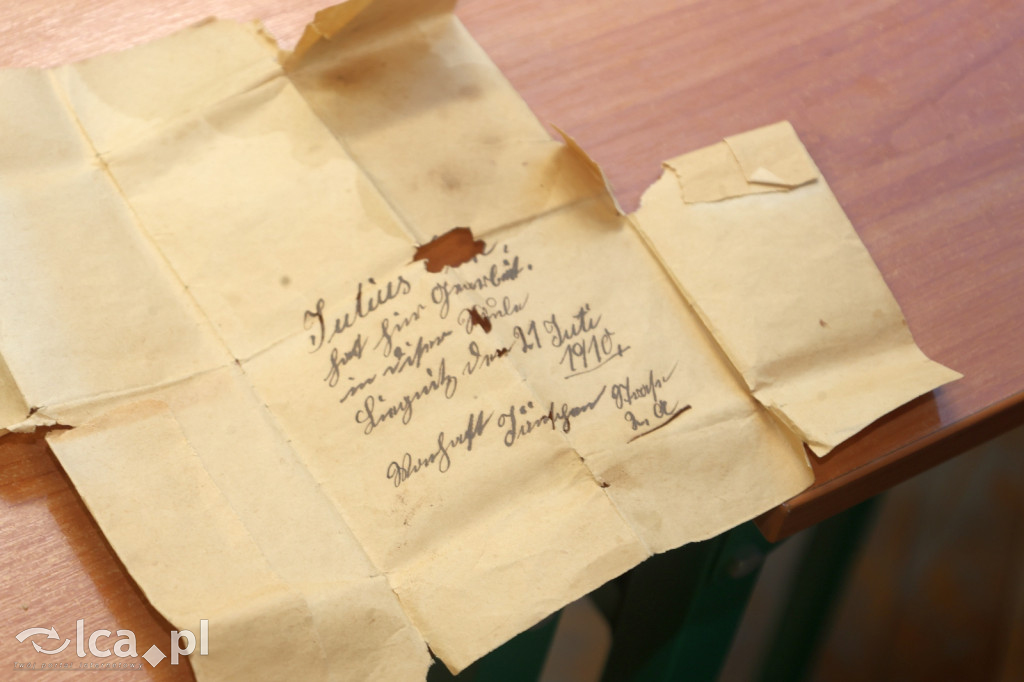 Julius
hat hier Gearbeit.
in diser Schule
Liegnitz den 21 Juli
1910
Wonhaft Jänschen Straße
2, a
lca.pl